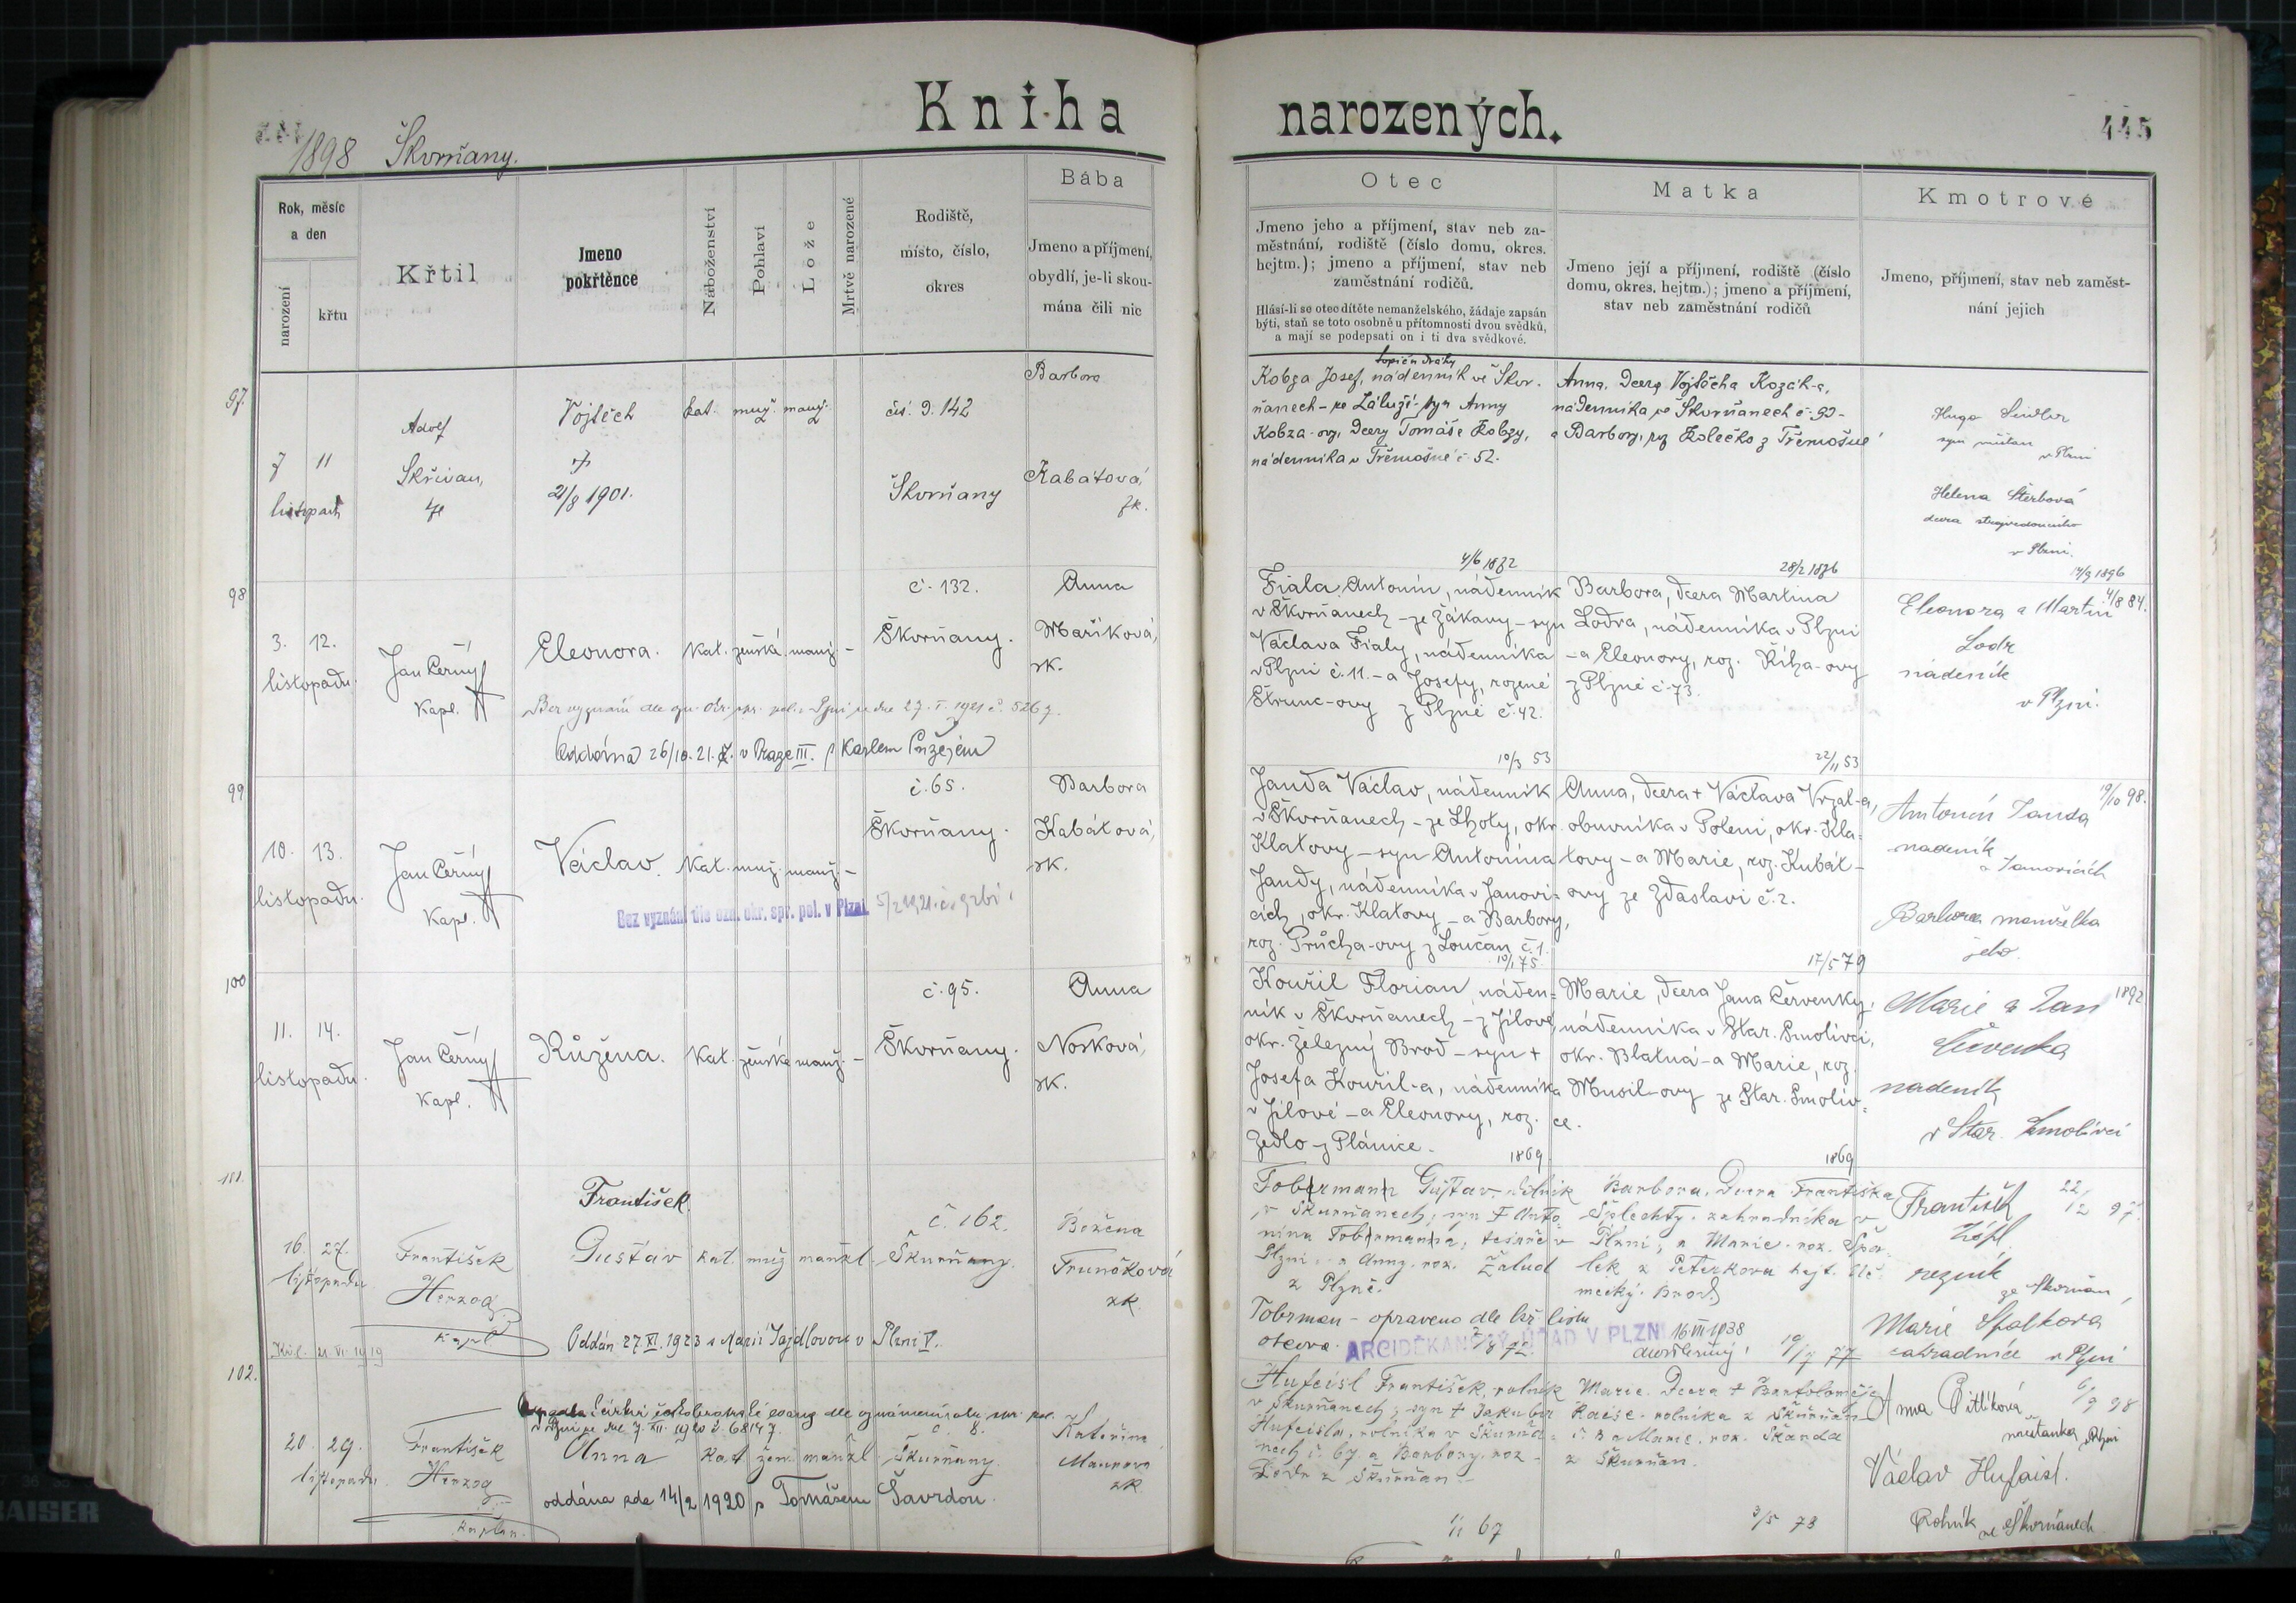 Kniha narozených.
445
1898 Škvrňany.
Rok, měsíc
a den
narození
křtu
Křtil
Jmeno
pokřtěnce
Náboženství
Pohlaví
Lože
Mrtvě narozené
Rodiště,
místo, číslo,
okres
Bába
Jmeno a příjmení,
obydlí, je-li skou-
mána čili nic
Otec
Jmeno jeho a příjmení, stav neb za-
městnání, rodiště (číslo domu, okres.
hejtm.); jmeno a příjmení, stav neb
zaměstnání rodičů.
Hlásí-li se otec dítěte nemanželského, žádaje zapsán
býti, staň se toto osobně u přítomnosti dvou svědků,
a mají se podepsati on i ti dva svědkové.
Matka
Jmeno její a příjmení, rodiště (číslo
domu, okres. hejtm.); jmeno a příjmení,
stav neb zaměstnání rodičů
Kmotrové
Jmeno, příjmení, stav neb zaměst-
nání jejich
97.
7 11
listopad
Adolf
Skřivan,
Vojtěch
21/8 1901.
kat. muž. manž.
142
Škvrňany
Barbora
Kabátová
zk.
topič u dráhy
Kobza Josef, nádenník ve Škvr-
ňanech - ze Záluží - syn Anny
Kobza-ovy, dcery Tomáše Kobzy,
nádenníka v Třemošné č. 52.
Anna, dcera Vojtěcha Kozák-a,
nádenníka ve Škvrňanech č. 90 -
a Barbory, roz. Kolečko z Třemošné
Hugo
v Plzni
Helena Šterbová
dcera
v Plzni.
98
3. 12.
listopadu.
Jan Černý
Kapl.
Eleonora.
Kat. ženská manž. -
č. 132.
Škvrňany.
Anna
Maříková,
zk.
Bez vyznání dle ozn. okr. spr. pol. v Plzni ze dne 27. I. 1921 č. 5267.
Oddána 26/10. 21. v Praze III. s Karlem
4/6 1872
Fiala Antonín, nádenník
v Škvrňanech - ze Žákavy - syn
Václava Fialy, nádenníka
v Plzni č. 11. - a Josefy, rozené
Štrunc-ovy z Plzně č. 42.
28/2 1876
Barbora, dcera Martina
Lodra, nádenníka v Plzni
- a Eleonory, roz. Říha-ovy
z Plzně č. 73.
14/9 1896
Eleonora a Martin 4/8 84.
Lodr
nádeník
v Plzni.
99
10. 13.
listopadu.
Jan Černý
Kapl.
Václav.
Kat. muž. manž. -
č. 65.
Škvrňany.
Barbora
Kabátová,
zk.
Bez vyznání dle ozn. okr. spr. pol. v Plzni
10/3 53
Janda Václav, nádenník
v Škvrňanech - ze Lhoty, okr.
Klatovy - syn Antonína
Jandy, nádenníka v Janovi-
cích, okr. Klatovy - a Barbory,
roz. Průcha-ovy z Loučan č. 1.
22/11 53
Anna, dcera + Václava Vrzal-a,
obuvníka v Poleni, okr. Kla-
tovy - a Marie, roz. Kubát-
ovy ze Zdaslavi č. 2.
19/10 98.
Antonín Janda
nadeník
v Janovicích
Barbora manželka
jeho.
100
11. 14.
listopadu.
Jan Černý
Kapl.
Růžena.
Kat. ženská manž. -
č. 95.
Škvrňany.
Anna
Nosková,
zk.
10/1 75.
Kouřil Florian, náden-
ník v Škvrňanech - z Jílové,
okr. Železný Brod - syn +
Josefa Kouřil-a, nádenníka
v Jílové - a Eleonory, roz.
Zedlo - z Plánice.
17/5 79
Marie, dcera Jana Červenky,
nádenníka v Star. Smolivci,
okr. Blatná - a Marie, roz.
Musil-ovy ze Star. Smoliv-
ce.
1892
Marie a Jan
Červenka
nadeník
v Star. Smolivci
101.
16. 27.
listopadu
František
Herzog
kapl.
František
Gustav
kat. muž manžl.
č. 162.
Škurňany.
Božena
Trunečková
zk.
Oddán 27. XI. 1923 s Marií Tajdlovou v Plzni V.
21. VI. 1919
1869.
Tobrmann Gustav, dělník
v Škurňanech, syn + Anto-
nína Tobrmanna, tesaře v
Plzni, a Anny, roz. Žalud
z Plzně.
Tobrman - opraveno dle kř. listu
otcova.
ARCIDĚKANSKÝ ÚŘAD V PLZNI
16 III 1938
1869
Barbora, dcera Františka
Šplechty, zahradníka v
Plzni, a Marie, roz.
lek z Peterkova hejt. Ně-
mecký Brod.
František 22/12 97.
řezník
ze Škvrňan,
Marie Spalková
zahradnice v Plzni
102.
20. 29.
listopadu
František
Herzog
kaplan.
7. XII. 1920 č. 68147.
Anna
kat žen. manžl
č. 8.
Škurňany.
Kateřina
Maurova
zk.
oddána zde 14/2 1920 s Tomášem Šavrdou.
2/8 72.
Hufeisl František, rolník
v Škurňanech; syn + Jakuba
Hufeisla, rolníka v Škurňa-
nech č. 67, a Barbory, roz.
Lodr z Škurňan.
19/7 77
Marie, dcera + Bartoloměje
Raise, rolníka z Škurňan
č. 8 a Marie, roz. Škanda
z Škurňan.
6/9 98
Anna Pitlíková
měšťanka v Plzni
Václav Hufaisl.
Rolník ve Škvrňanech
1/11 67
3/5 73